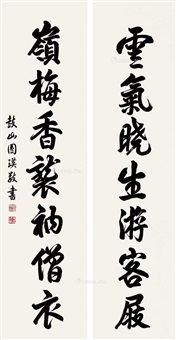 雲氣曉生游客屐
嶺梅香襲衲僧衣
鼓山圓瑛敬書